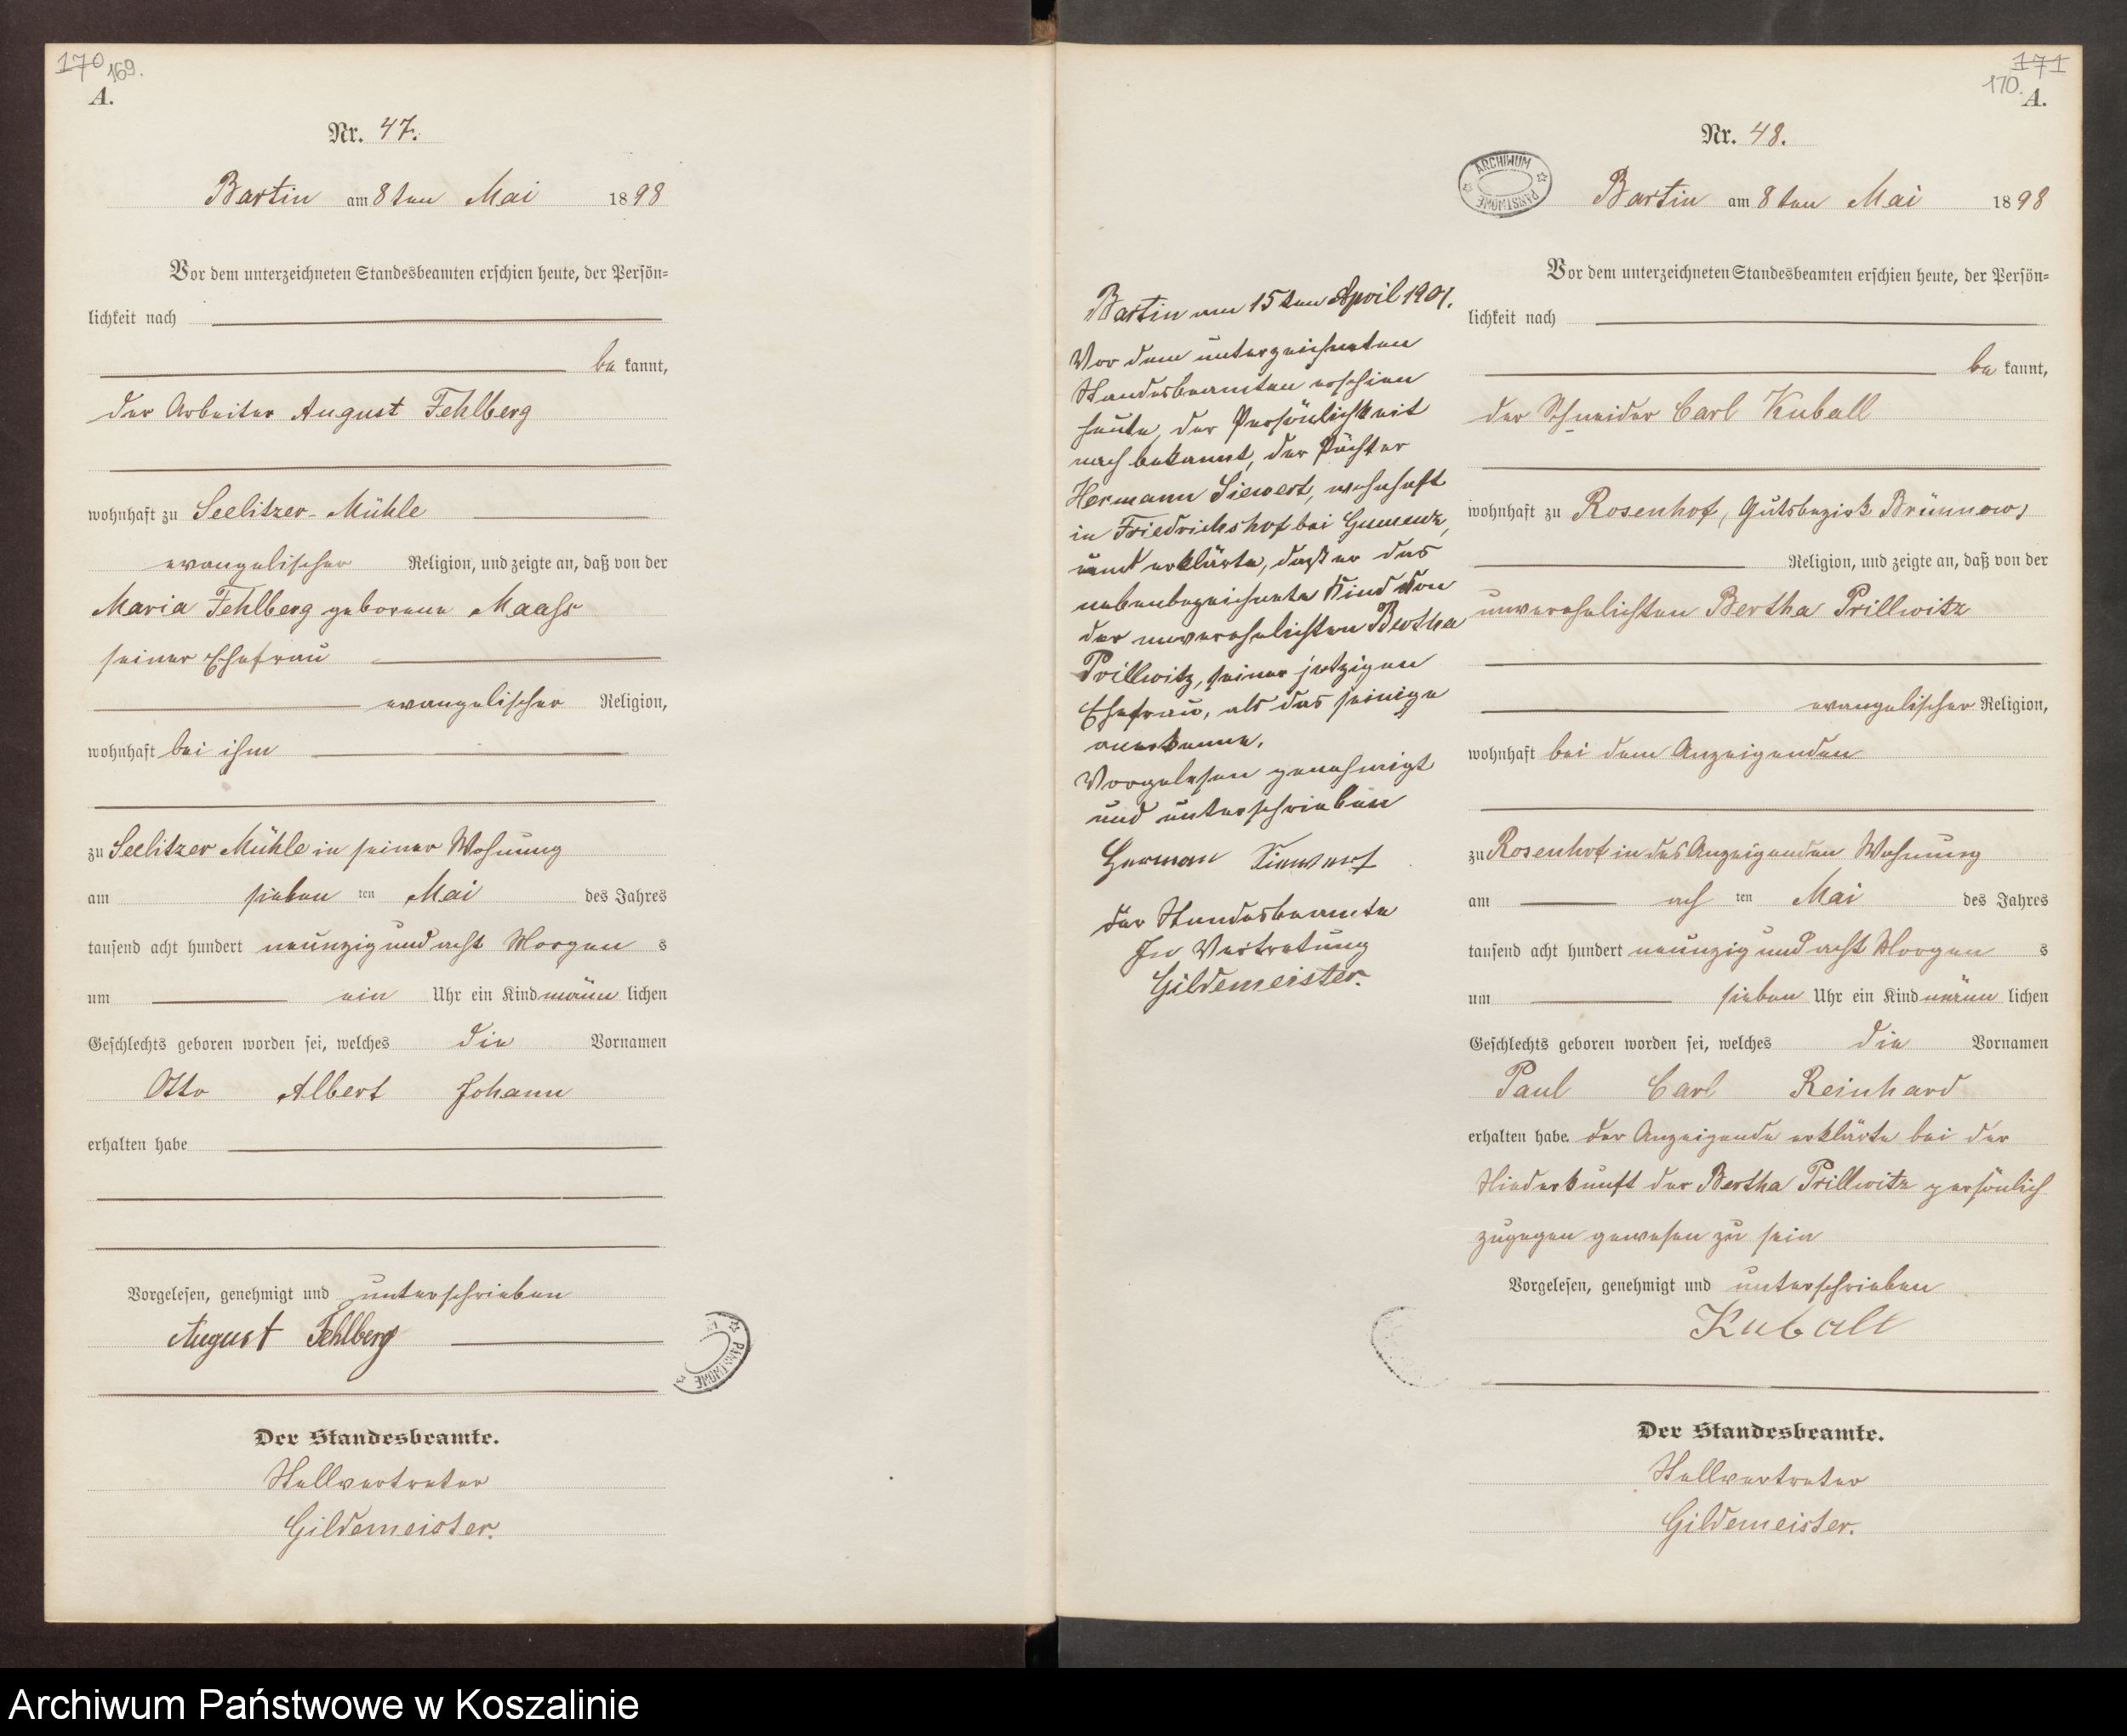 170 169.
A.
Nr. 47.
Bartin am 8ten Mai 1898
Vor dem unterzeichneten Standesbeamten erschien heute, der Persön=
lichkeit nach
be kannt,
der Arbeiter August Fehlberg
wohnhaft zu Seelitzer-Mühle
evangelischer Religion, und zeigte an, daß von der
Maria Fehlberg geborene Maaß
seiner Ehefrau
evangelischer Religion,
wohnhaft bei ihm
zu Seelitzer Mühle in seiner Wohnung
am sieben ten Mai des Jahres
tausend acht hundert neunzig und acht Morgen s
um ein Uhr ein Kind männ lichen
Geschlechts geboren worden sei, welches die Vornamen
Otto Albert Johann
erhalten habe
Vorgelesen, genehmigt und unterschrieben
August Fehlberg
Der Standesbeamte.
Stellvertreter
Gildemeister.
PAŃSTWOWE
171
170.
A.
Nr. 48.
ARCHIWUM PAŃSTWOWE
Bartin am 8ten Mai 1898
Vor dem unterzeichneten Standesbeamten erschien heute, der Persön=
lichkeit nach
be kannt,
der Schneider Carl Kuball
wohnhaft zu Rosenhof, Gutsbezirk Brünnow,
Religion, und zeigte an, daß von der
unverehelichten Bertha Prillwitz
evangelischer Religion,
wohnhaft bei dem Anzeigenden
zu Rosenhof in des Anzeigenden Wohnung
am ach ten Mai des Jahres
tausend acht hundert neunzig und acht Morgen s
um sieben Uhr ein Kind männ lichen
Geschlechts geboren worden sei, welches die Vornamen
Paul Carl Reinhard
erhalten habe. der Anzeigende erklärte bei der
Niederkunft der Bertha Prillwitz persönlich
zugegen gewesen zu sein
Vorgelesen, genehmigt und unterschrieben
Kuball
Der Standesbeamte.
Stellvertreter
Gildemeister.
Bartin am 15ten April 1901.
Vor dem unterzeichneten
Standesbeamten erschien
heute, der Persönlichkeit
nach bekannt, der Pächter
Hermann Siewert, wohnhaft
in Friedrichshof bei Gumenz,
und erklärte, daß er das
nebenbezeichnete Kind von
der unverehelichten Bertha
Prillwitz, seiner jetzigen
Ehefrau, als das seinige
anerkenne.
Vorgelesen genehmigt
und unterschrieben
Herman Siewert
der Standesbeamte
In Vertretung
Gildemeister.
Archiwum Państwowe w Koszalinie